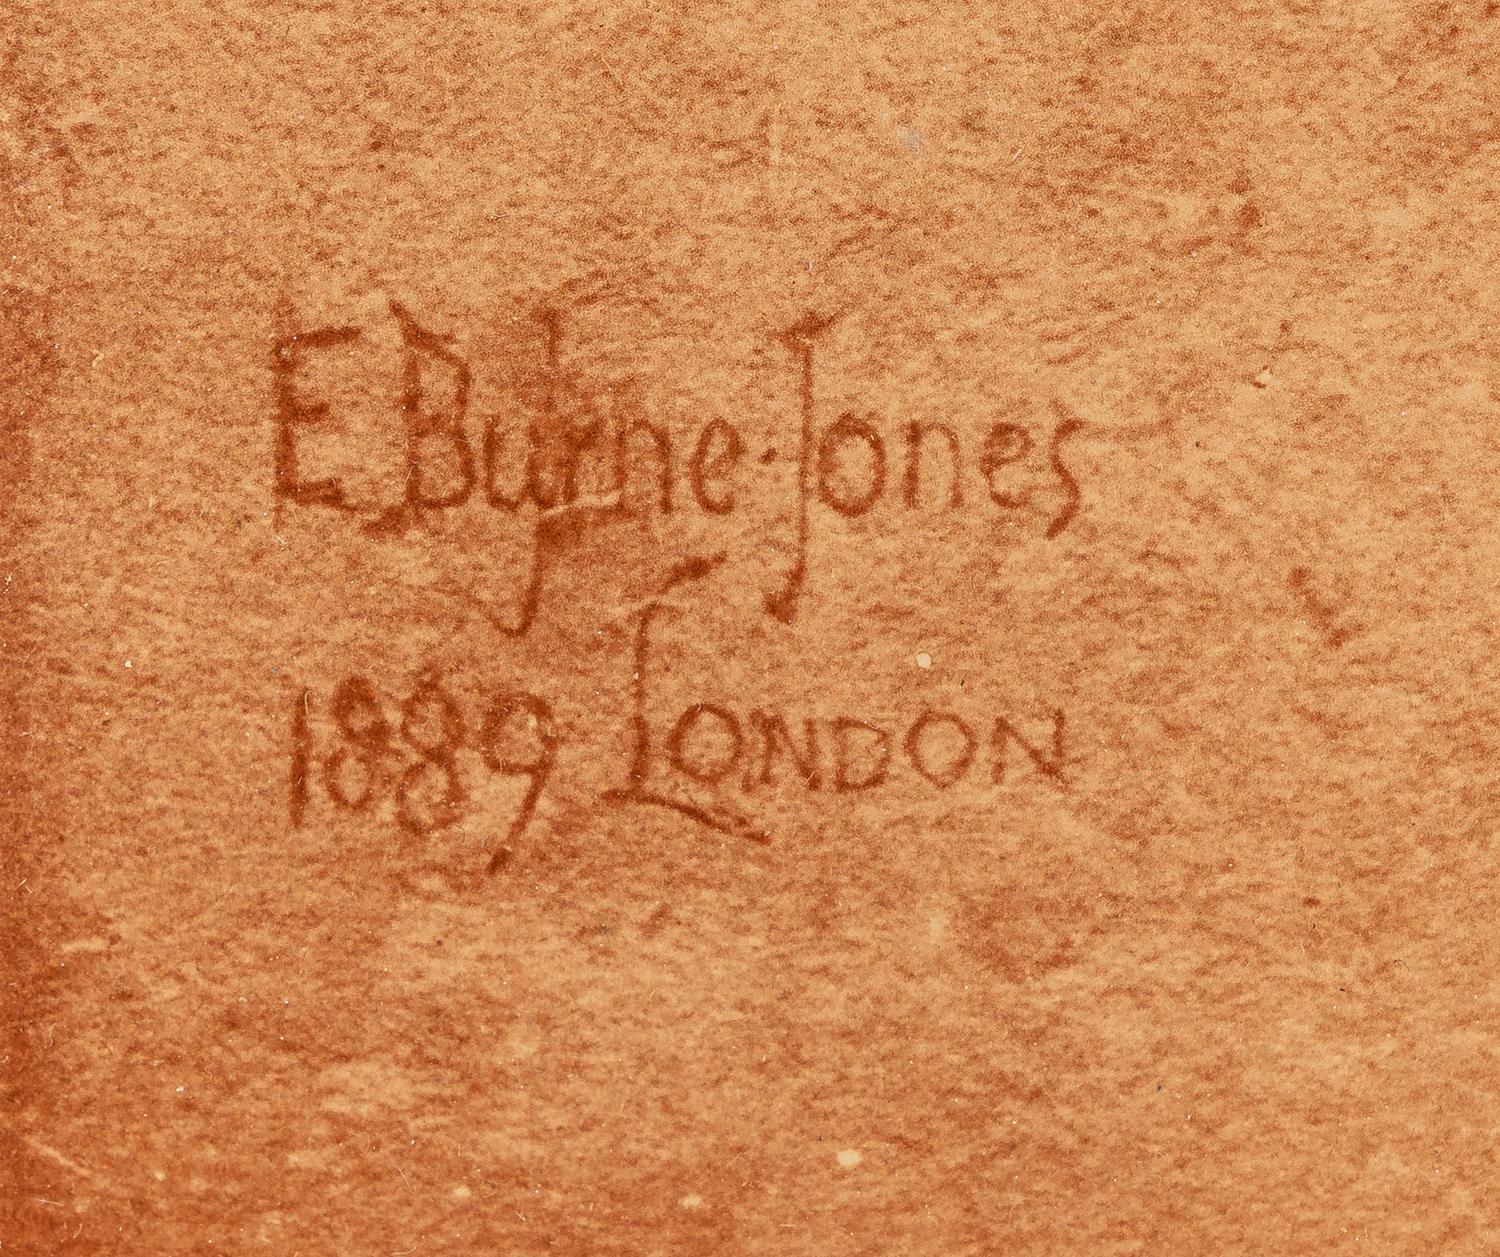 E Burne·Jones
1889 LONDON